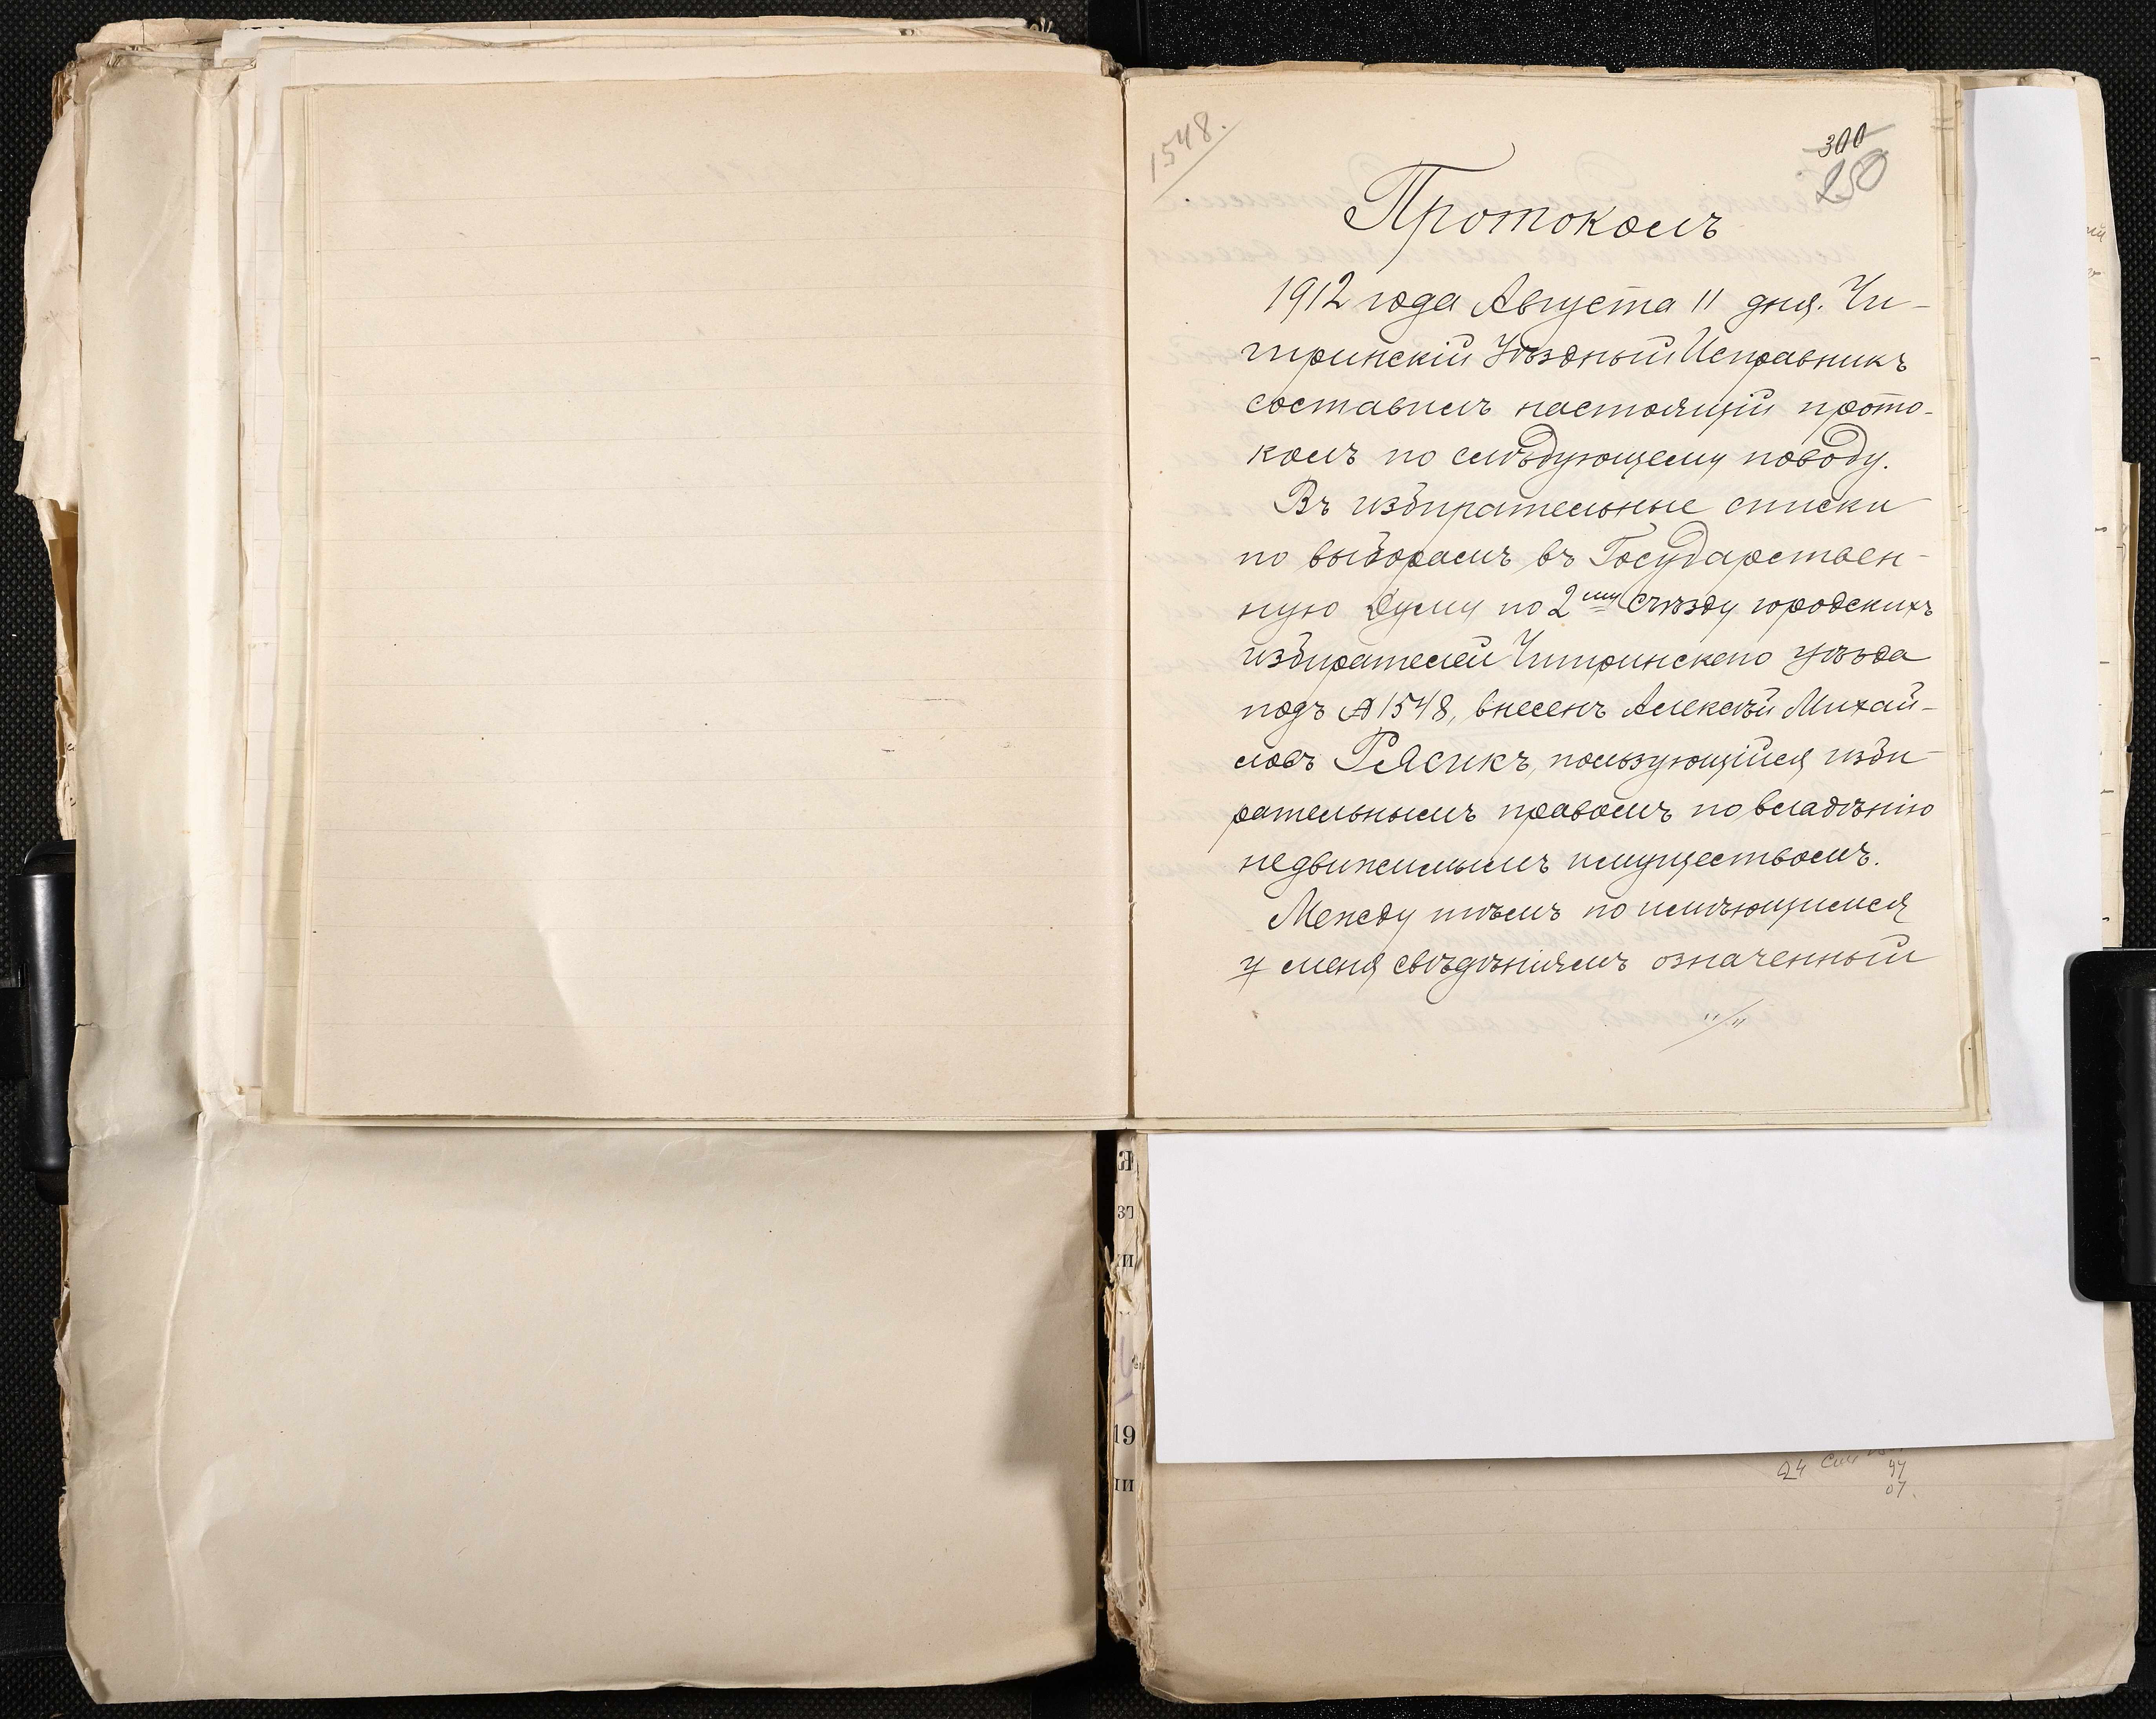 1548.
300
250
Протоколъ
1912 года Августа 11 дня. Чи-
гиринскій Уѣздный Исправникъ
составилъ настоящій прото-
колъ по слѣдующему поводу.
Въ избирательные списки
по выборамъ въ Государствен-
ную Думу по 2му Съѣзду городскихъ
избирателей Чигиринскаго уѣзда
подъ № 1548, внесенъ Алексѣй Михай-
ловъ Рясикъ, пользующійся изби-
рательнымъ правомъ по владѣнію
недвижимымъ имуществомъ.
Между тѣмъ по имѣющимся
у меня свѣдѣніямъ означенный
19
ІИ
24
97
07.